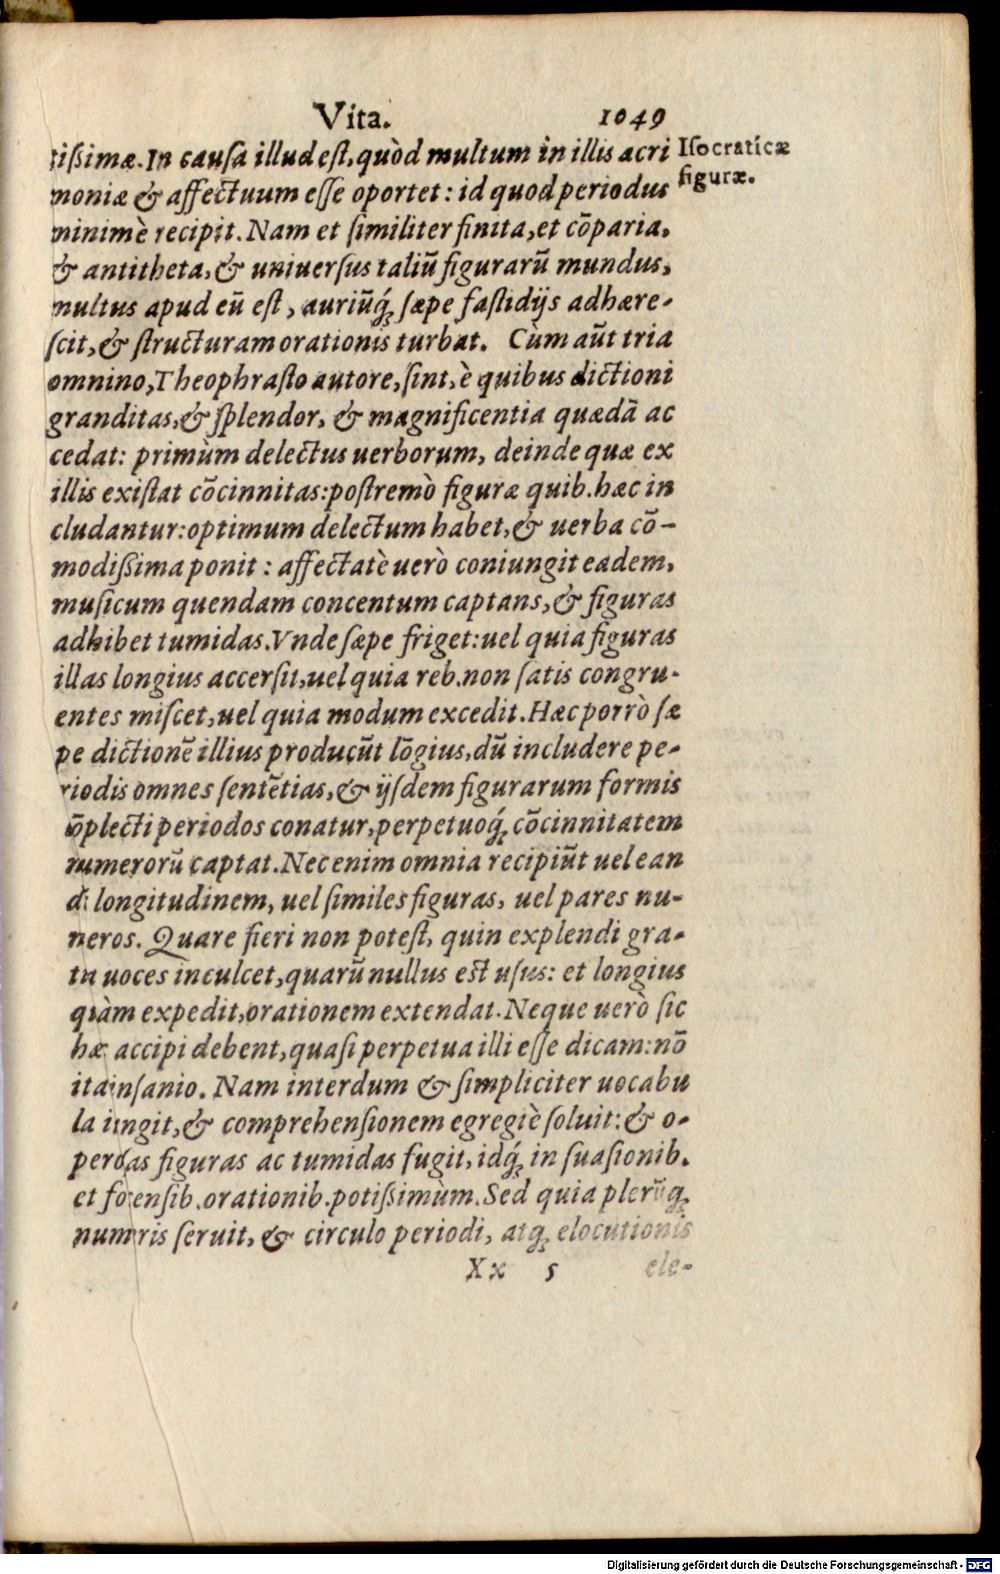 Vita. 1049
tißimæ. In causa illud est, quòd multum in illis acri
moniæ & affectuum esse oportet: id quod periodus
minimè recipit. Nam et similiter finita, et cōparia,
& antitheta, & uniuersus taliū figurarū mundus,
multus apud eū est, auriūq́; sæpe fastidijs adhære-
scit, & structuram orationis turbat. Cùm aūt tria
omnino, Theophrasto autore, sint, è quibus dictioni
granditas, & splendor, & magnificentia quædā ac
cedat: primùm delectus uerborum, deinde quæ ex
illis existat cōcinnitas: postremò figuræ quib. hæc in
cludantur: optimum delectum habet, & uerba cō-
modißima ponit: affectatè uerò coniungit eadem,
musicum quendam concentum captans, & figuras
adhibet tumidas. Vnde sæpe friget: uel quia figuras
illas longius accersit, uel quia reb. non satis congru-
entes miscet, uel quia modum excedit. Hæc porrò sæ
pe dictionē illius producūt lōgius, dū includere pe-
riodis omnes sentētias, & ijsdem figurarum formis
ōplecti periodos conatur, perpetuoq́; cōcinnitatem
numerorū captat. Nec enim omnia recipiūt uel ean
dē longitudinem, uel similes figuras, uel pares nu-
neros. Quare fieri non potest, quin explendi gra-
tia uoces inculcet, quarū nullus est usus: et longius
quàm expedit, orationem extendat. Neque uerò sic
hæc accipi debent, quasi perpetua illi esse dicam: nō
ita insanio. Nam interdum & simpliciter uocabu
la iungit, & comprehensionem egregiè soluit: & o-
perosas figuras ac tumidas fugit, idq́; in suasionib.
et forensib. orationib. potißimùm. Sed quia plerūq;
numeris seruit, & circulo periodi, atq; elocutionis
Xx 5 ele-
Isocraticæ
figuræ.
Digitalisierung gefördert durch die Deutsche Forschungsgemeinschaft - DFG